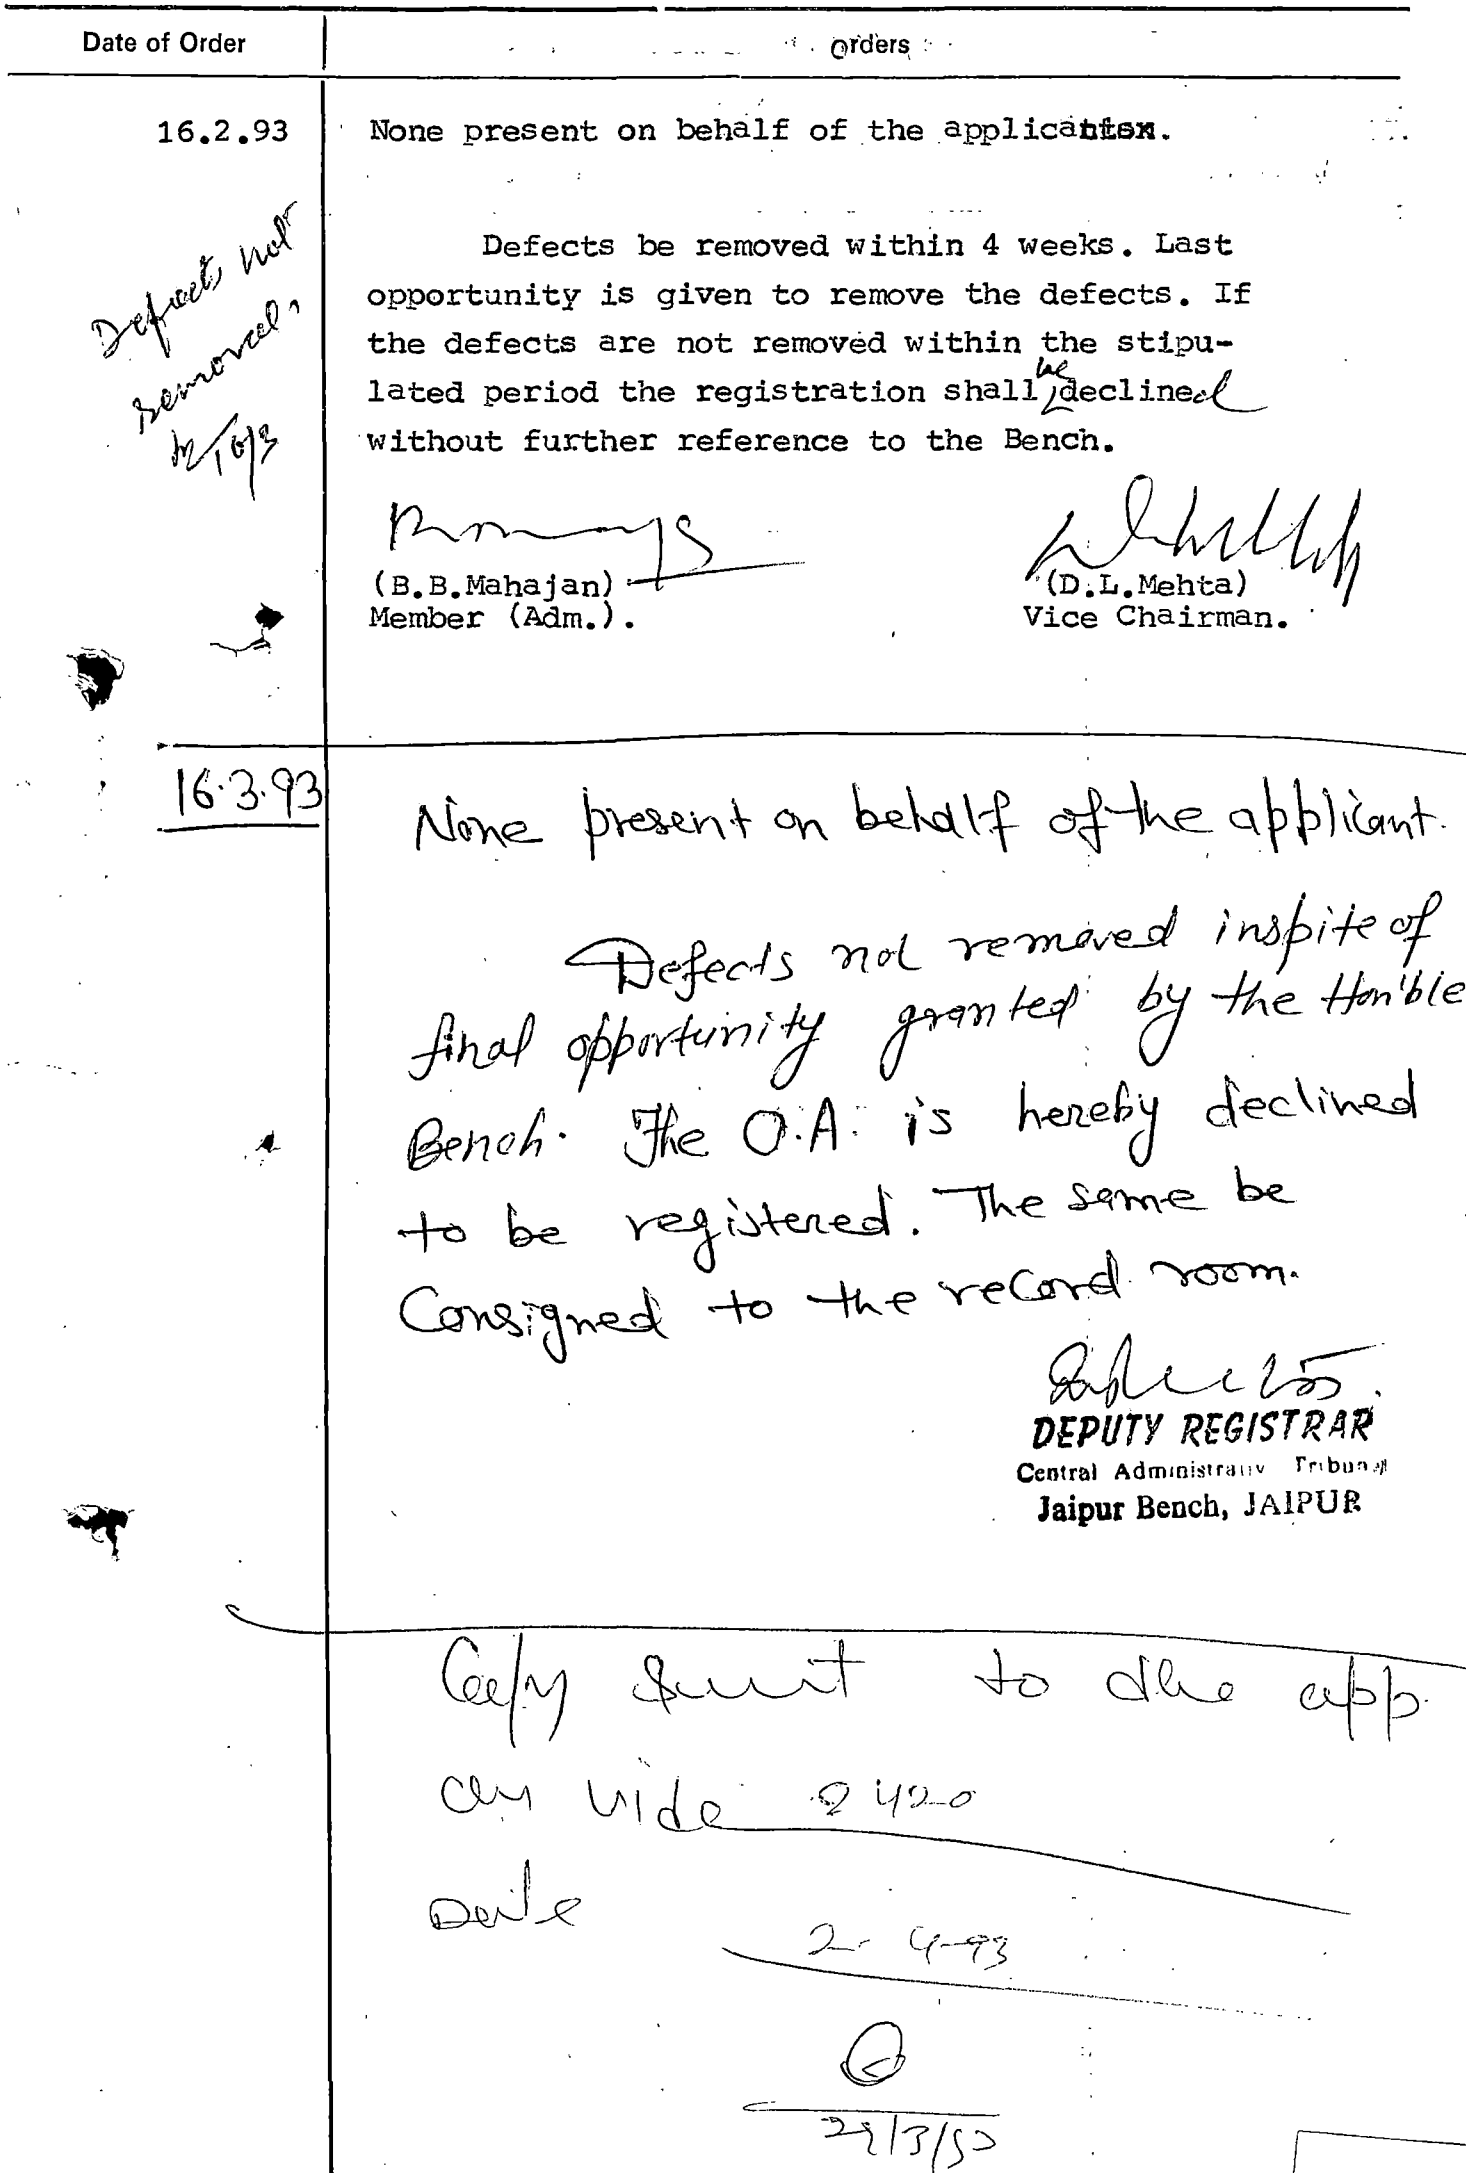 Date of Order
Orders
16.2.93
None present on behalf of the applicant
Defects not
removed,
16/3
Defects be removed within 4 weeks. Last
opportunity is given to remove the defects. If
the defects are not removed within the stipu-
lated period the registration shall be declined
without further reference to the Bench.
(B.B.Mahajan)
Member (Adm.).
(D.L.Mehta)
Vice Chairman.
16.3.93
None present on behalf of the applicant.
Defects not removed inspite of
final opportunity granted by the Hon'ble
Bench. The O.A. is hereby declined
to be registered. The same be
Consigned to the record room.
DEPUTY REGISTRAR
Central Administrativ Tribunal
Jaipur Bench, JAIPUR
Copy sent to the app
vide 2420
Date
2-4-93